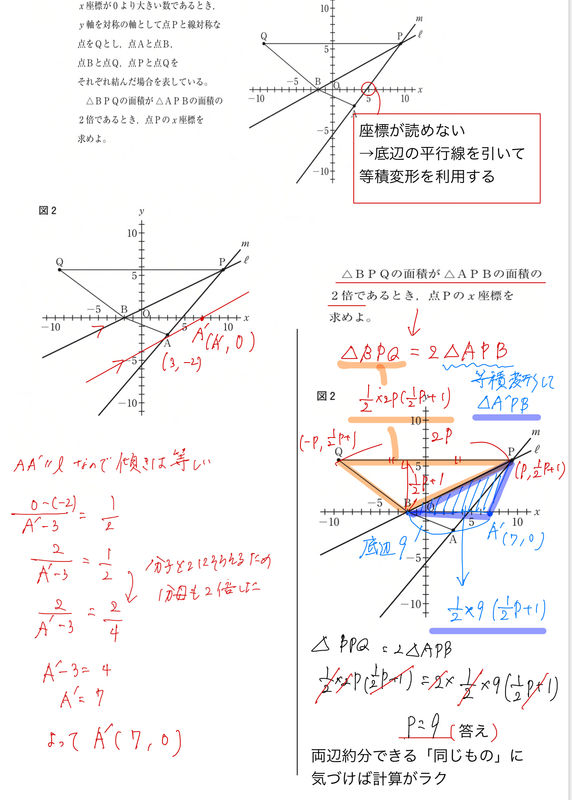 x座標が0より大きい数であるとき,
y軸を対称の軸として点Pと線対称な
点をQとし,点Aと点B,
点Bと点Q,点Pと点Qを
それぞれ結んだ場合を表している。
△BPQの面積が△APBの面積の
2倍であるとき,点Pのx座標を
求めよ。
10
m
Q
P
ℓ
5
-5
B
O
x
-10
5
10
A
-5
-10
座標が読めない
→底辺の平行線を引いて
等積変形を利用する
図2
y
10
m
Q
P
ℓ
5
-5
B
O
x
-10
10
A
A'(A', 0)
(3, -2)
-5
-10
AA'//ℓ なので 傾きは等しい
0-(-2)/A'-3 = 1/2
2/A'-3 = 1/2
分子を2にそろえるため
分母も2倍した
2/A'-3 = 2/4
A'-3 = 4
A' = 7
よって A'(7, 0)
△BPQの面積が△APBの面積の
2倍であるとき,点Pのx座標を
求めよ。
△BPQ = 2△APB
等積変形して
△A'PB
図2
1/2×2p(1/2p+1)
10
m
(-p, 1/2p+1)
2p
Q
P
ℓ
(p, 1/2p+1)
5
1/2p+1
-5
B
O
x
-10
10
底辺9
A
A'(7, 0)
-5
-10
1/2×9(1/2p+1)
△BPQ = 2△APB
1/2×2p(1/2p+1) = 2×1/2×9(1/2p+1)
p = 9 (答え)
両辺約分できる「同じもの」に
気づけば計算がラク